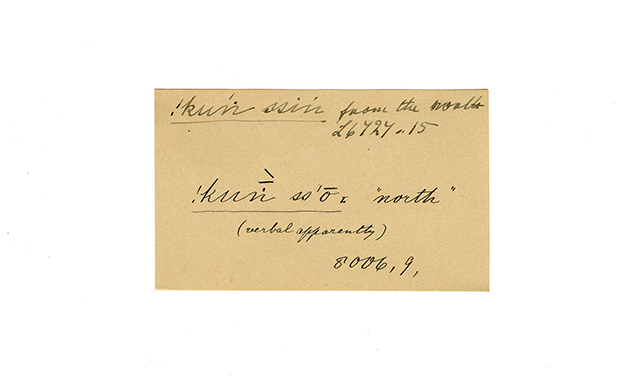 !kuṅ ssin from the north
L6727.15
!kuṅ ss'ō = "north"
(verbal apparently)
8006, 9,